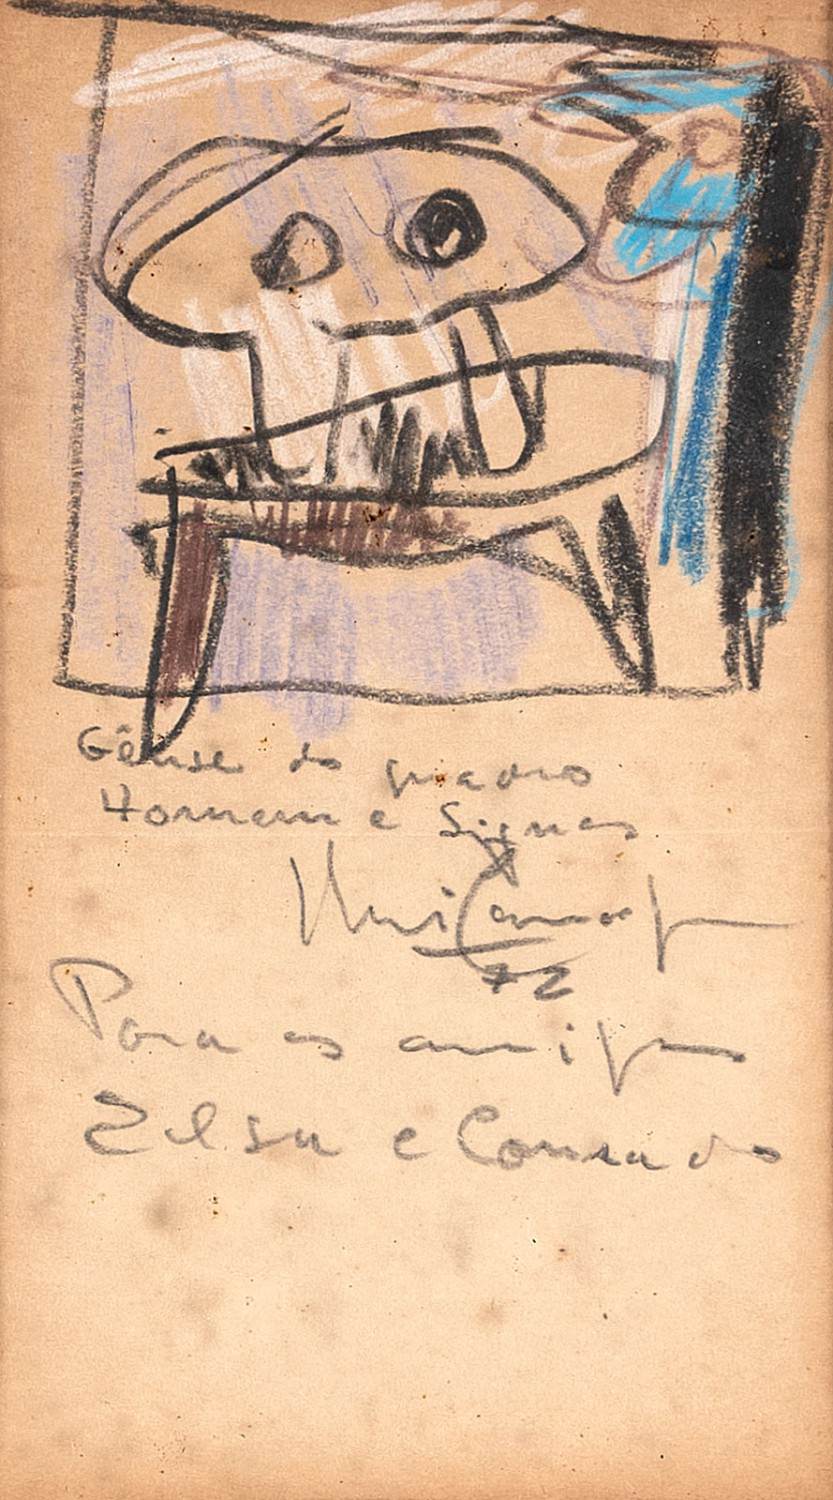 Gênese do quadro
Homem e Signos
Iberê Camargo
72
Para os amigos
Zilsa e Conrado